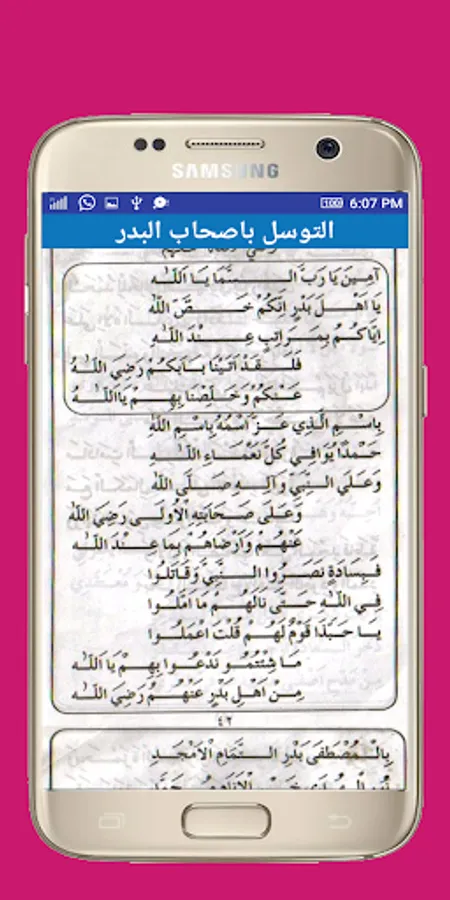 SAMSUNG
100 6:07 PM
التوسل باصحاب البدر
آمِينَ يَا رَبَّ السَّمَا يَا اَللّٰه
يَا اَهْلَ بَدْرٍ اِنَّكُمْ خَصَّ اللّٰه
اِيَّاكُمُ بِمَرَاتِبٍ عِنْدَ اللّٰه
فَلَقَدْ اَتَيْنَا بَابَكُمْ رَضِيَ اللّٰهُ
عَنْكُمْ وَخَلِّصْنَا بِهِمْ يَااَللّٰهُ
بِاسْمِ الَّذِي عَزَّ اسْمُهُ بِاسْمِ اللّٰهِ
حَمْدًا يُوَافِي كُلَّ نَعْمَاءِ اللّٰهِ
وَعَلَى النَّبِيْ وَآلِهِ صَلَّى اللّٰه
وَعَلَى صَحَابَتِهِ الْاُولَى رَضِيَ اللّٰهُ
عَنْهُمْ وَاَرْضَاهُمْ بِمَا عِنْدَ اللّٰه
فَبِسَادَةٍ نَصَرُوا النَّبِيَّ وَقَاتَلُوا
فِي اللّٰهِ حَتَّى نَالَهُمْ مَا اَمَّلُوا
يَا حَبَّذَا قَوْمٌ لَهُمْ قُلْتَ اعْمَلُوا
مَا شِئْتُمُو نَدْعُوا بِهِمْ يَا اَللّٰه
مِنْ اَهْلِ بَدْرٍ عَنْهُمُ رَضِيَ اللّٰه
٤٢
بِالْمُصْطَفَى بَدْرِ التَّمَامِ الْاَمْجَدِ